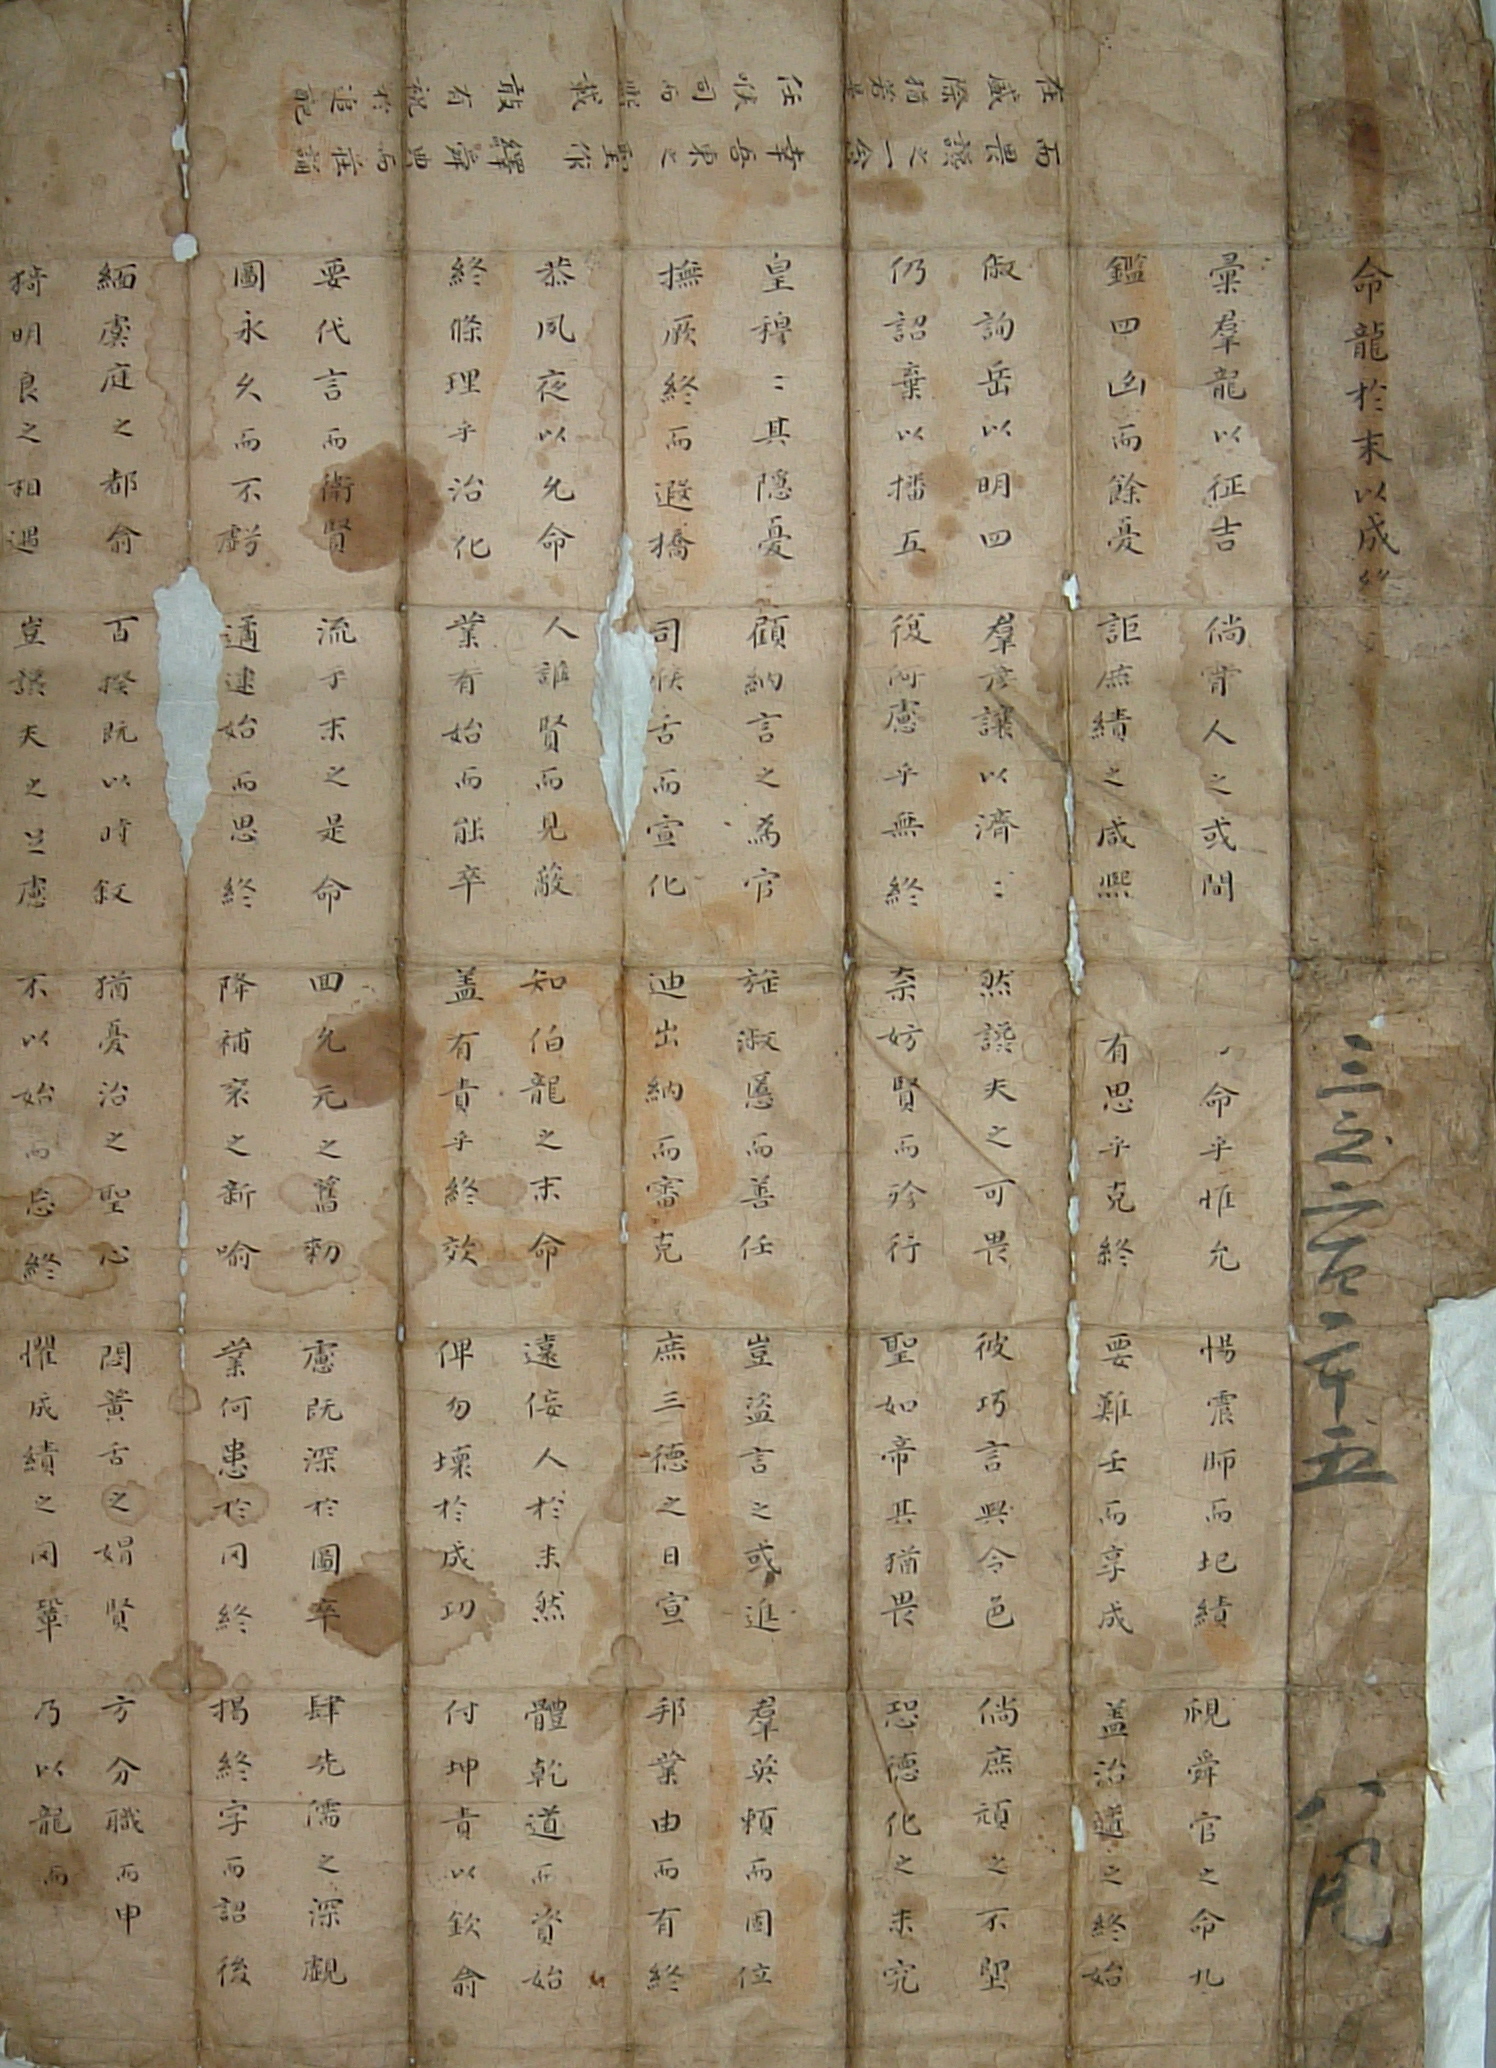 命龍於末以成終
彙羣龍以征吉 倘宵人之或間 命乎惟允 惕震師而圮績 視舜官之命九
鑑四凶而餘憂 詎庶績之咸熙 有思乎克終 要難壬而享成 盖治道之終始
俶詢岳以明四 羣彦讓以濟〻 然讒夫之可畏 彼巧言與令色 倘庶頑之不堲
仍詔棄以播五 復何慮乎無終 奈妨賢而殄行 聖如帝其猶畏 恐德化之未究
皇穆〻其隱憂 顧納言之為官 旌淑慝而善任 豈盜言之或進 羣英頼而固位
撫厥終而遐撟 司喉舌而宣化 迪出納而審克 庶三德之日宣 邦業由而有終
恭夙夜以允命 人誰賢而見蔽 知伯龍之末命 遠侫人於未然 體乾道而資始
終條理乎治化 業有始而能卒 盖有責乎終效 俾勿壞於成功 付坤責以欽俞
要代言而衛賢 流于末之是命 回允元之舊勑 慮既深於圖卒 肆先儒之深覰
圖永久而不虧 遹逮始而思終 降補袞之新喻 業何患於罔終 揭終字而詔後
緬虞庭之都俞 百揆既以時叙 猶憂治之聖心 悶黃舌之媢賢 方分職而申
猗明良之相遇 豈讒夫之足慮 不以始而忘終 懼成績之罔鞏 乃以龍而
在盛際猶若是 任喉司而熙載 敢有祝於追記
而畏讒之一念 幸岳東之聖作 繹舜典而莊誦